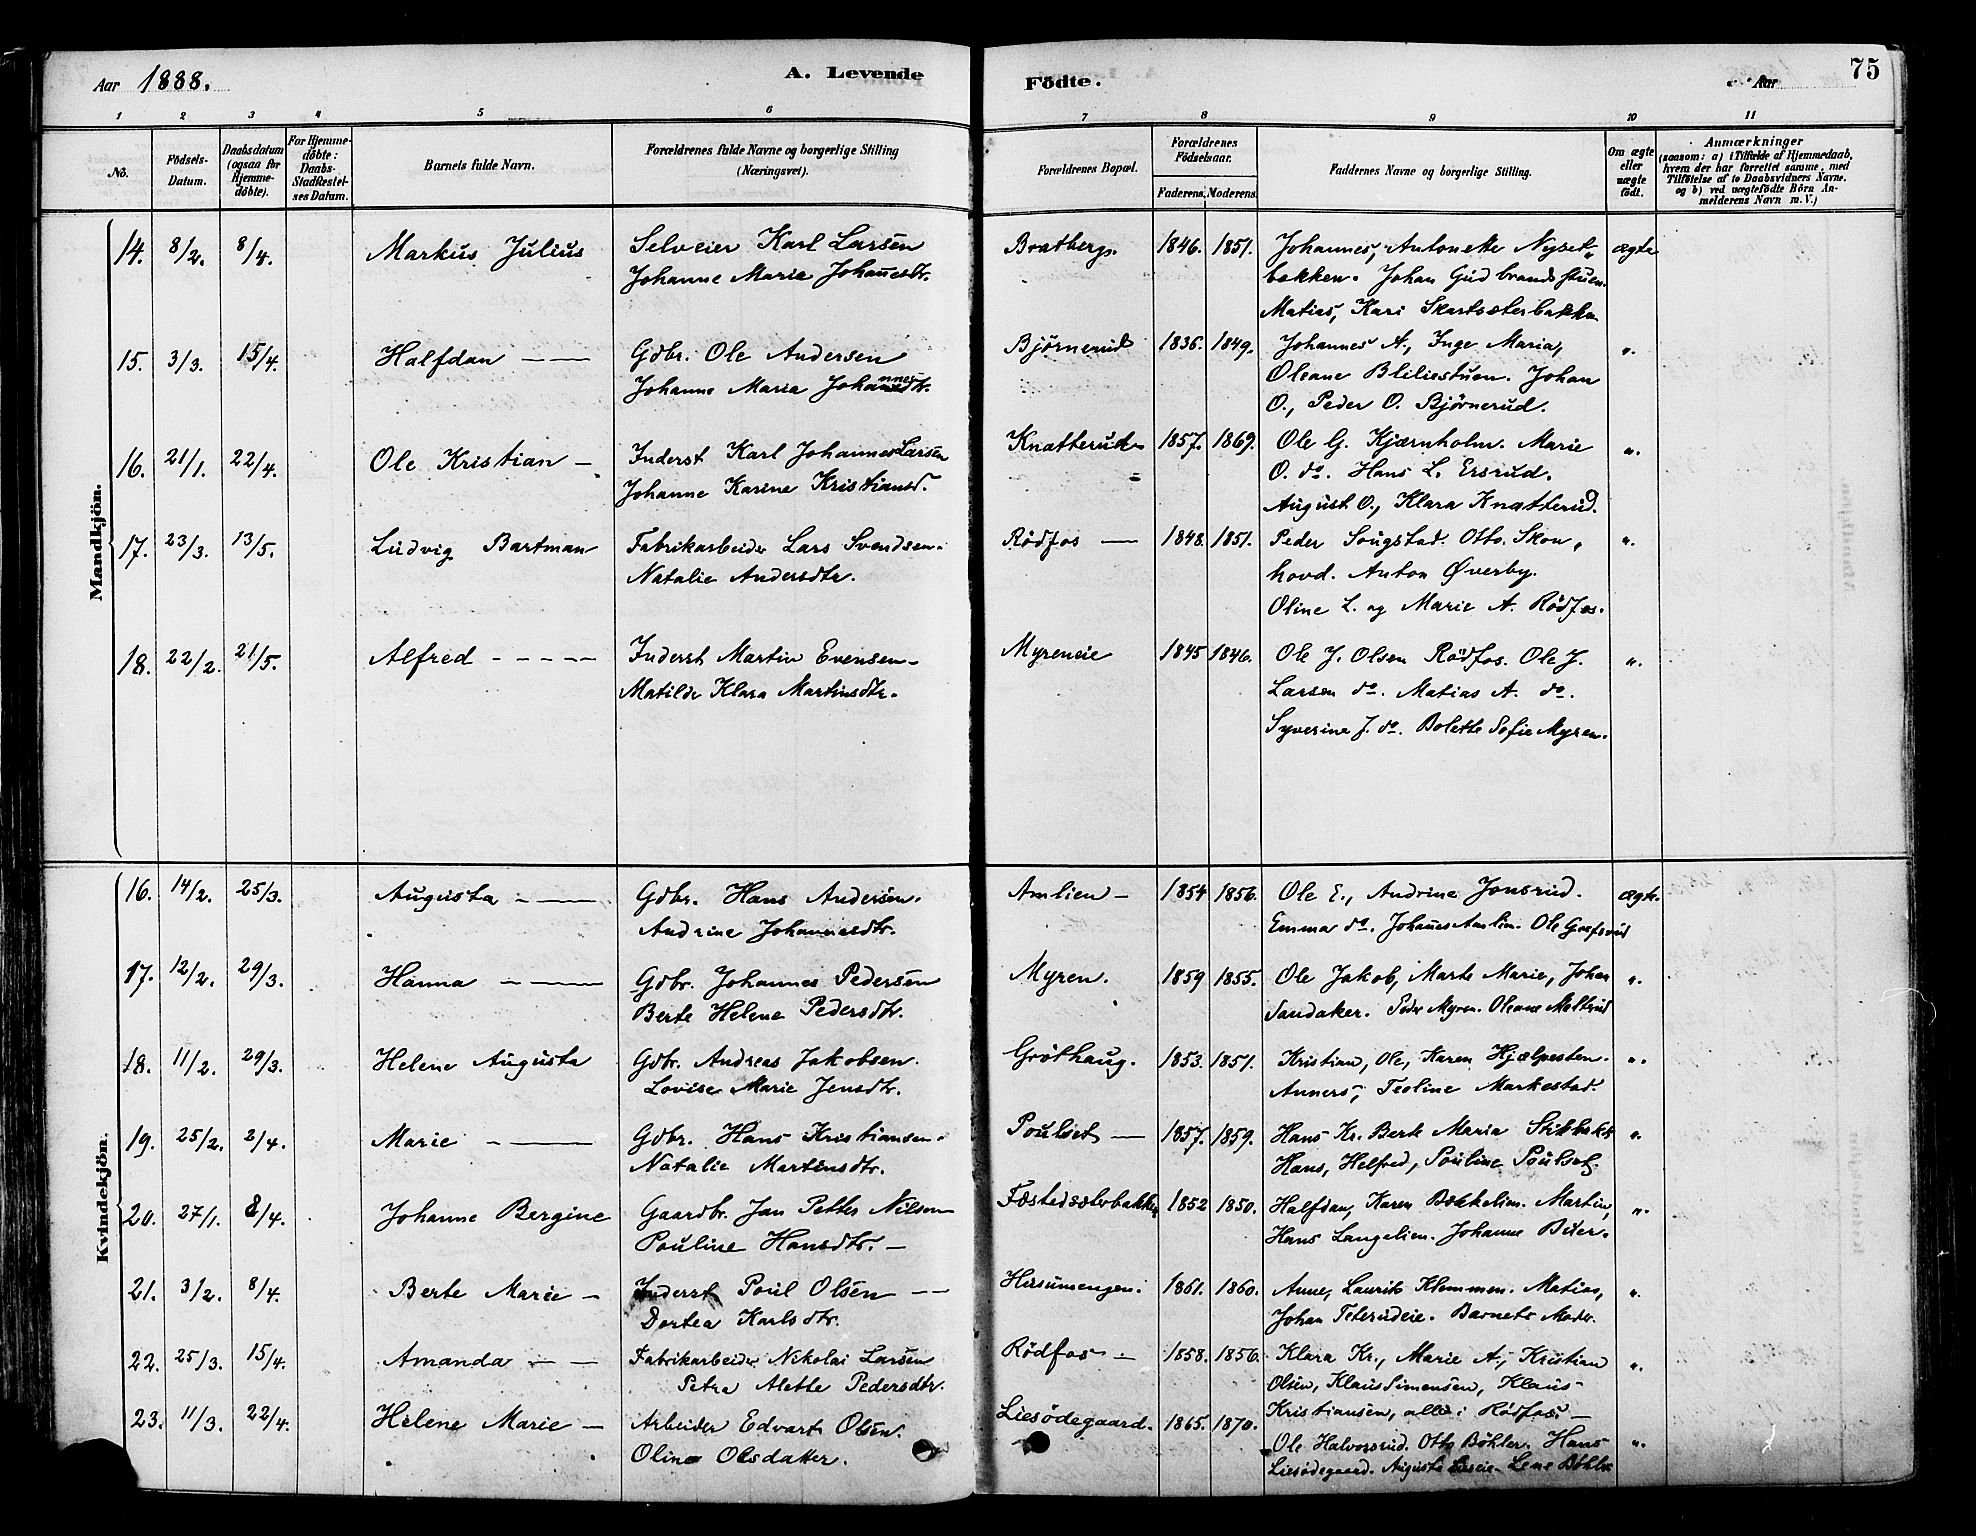 Aar 1888. A. Levende Födte. Aar 75
1 2 3 4 5 6 7 8 9 10 11
No. Födsels-Datum. Daabsdatum (ogsaa for Hjemmedöbte). For Hjemmedöbte: Daabs-Stadfæstelses Datum. Barnets fulde Navn. Forældrenes fulde Navne og borgerlige Stilling (Næringsvei). Forældrenes Bopæl. Forældrenes Födselsaar. Faderens. Moderens. Faddernes Navne og borgerlige Stilling. Om ægte eller uægte födt. Anmærkninger (saasom: a) i Tilfælde af Hjemmedaab, hvem der har forrettet samme, med Tilföielse af to Daabsvidners Navne, og b) ved uægtefödte Börn Anmelderens Navn m. V.)
Mandkjön.
14. 8/2. 8/4. Markus Julius Selveier Karl Larsen Bratberg. 1846. 1851. Johannes, Antonette Nyset- ægte
Johanne Marie Johannesdtr. bakken. Johan Gudbrandsstuen.
Matias, Kari Skartsæterbakken
15. 3/3. 15/4. Halfdan Gdbr. Ole Andersen Bjørnerud 1836. 1849. Johannes A., Inge Maria, "
Johanne Maria Johannesdtr. Oleane Bliliestuen. Johan
O., Peder O. Bjørnerud.
16. 21/1. 22/4. Ole Kristian – Inderst Karl Johannes Larsen Knatterud 1857. 1869. Ole G. Kjærnholm. Marie "
Johanne Karine Kristiansd. O. do. Hans L. Ersrud.
August O., Klara Knatterud.
17. 23/3. 13/5. Ludvig Bartman Fabrikarbeider Lars Svendsen. Rødfos — 1848. 1851. Peder Sougstad. Otto Skon- "
Natalie Andersdtr. hovd. Anton Øverby.
Oline L. og Marie A. Rødfos.
18. 22/2. 21/5. Alfred Inderst Martin Evensen Myreneie 1845 1846. Ole J. Olsen Rødfos. Ole J. "
Matilde Klara Martinsdtr. Larsen do. Matias A. do.
Syverine J. do. Bolette Sofie Myren.
Kvindekjön.
16. 14/2. 25/3. Augusta Gdbr. Hans Andersen. Amlien – 1854 1856. Ole E., Andrine Jonsrud. ægte.
Andrine Johannesdtr. Emma do. Johannes Amlien. Ole
17. 12/2. 29/3. Hanna Gdbr. Johannes Pedersen Myren. 1859 1855. Ole Jakob, Marte Marie, Johan "
Berte Helene Pedersdtr. Sandaker. Peder Myren. Oleane
18. 11/2. 29/3. Helene Augusta Gdbr. Andreas Jakobsen. Grøthaug. 1853. 1851. Kristian, Ole, Karen Hjælpesten. "
Lovise Marie Jensdtr. Anners, Teoline Markestad.
19. 25/2. 2/4. Marie Gdbr. Hans Kristiansen. Poulset — 1857. 1859. Hans Kr. Berte Maria "
Natalie Martinsdtr. Hans, Helfred, Pouline Poulset.
20. 27/1. 8/4. Johanne Bergine Gaardbr. Jan Petter Nilsen 1852 1850. Halfdan, Karen Bækkelien. Martin, "
Pouline Hansdtr. – Hans Langelien. Johanne
21. 3/2. 8/4. Berte Marie – Inderst Poul Olsen 1861. 1860. Anne, Laurits Klemmen. Matias, "
Dortea Karlsdtr. Johan Teterudeie. Barnets Moder.
22. 25/3. 15/4. Amanda Fabrikarbeider Nikolai Larsen Rødfos 1858. 1856. Klara Kr., Marie A., Kristian "
Petra Alette Pedersdtr. Olsen, Klaus Simensen, Klaus
Kristiansen, alle i Rødfos. –
23. 11/3. 22/4. Helene Marie – Arbeider Edvart Olsen. Liesødegaard. 1865. 1870. Ole Halvorsrud. Otto Bøhler. Hans "
Oline Olsdatter. Liesødegaard. Augusta Lieseie. Lene Bøhler